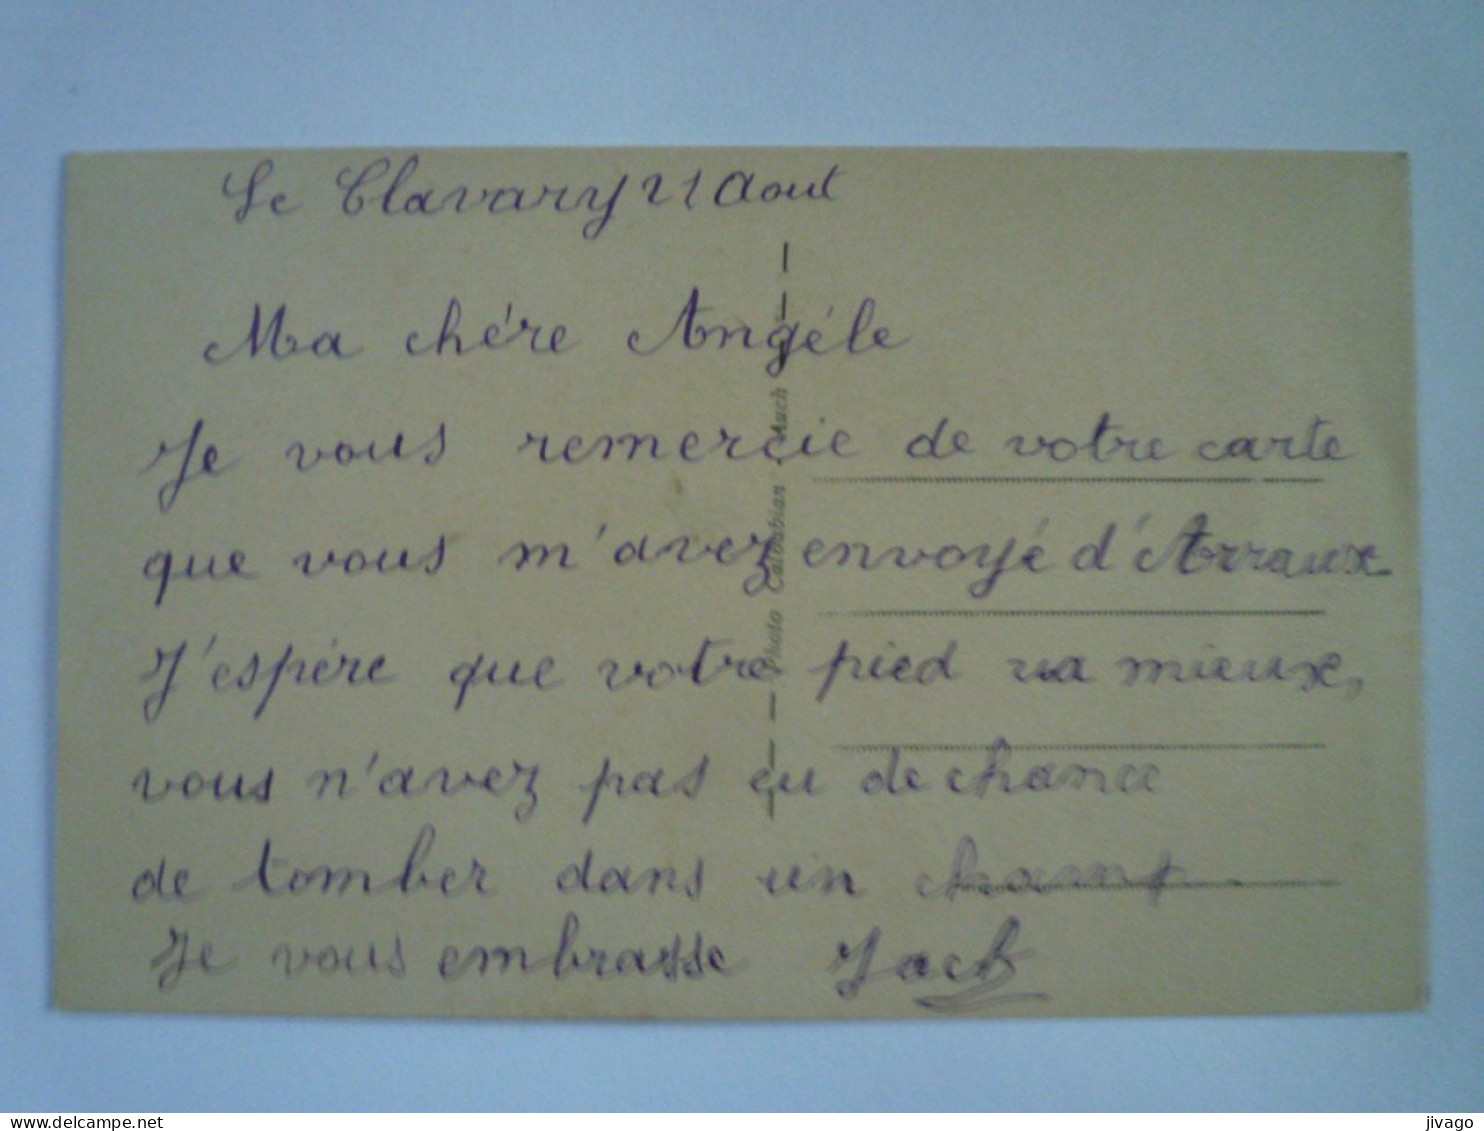 Le Clavary 21 Aout
Ma chére Angéle
Je vous remercie de votre carte
que vous m'avez envoyé d'Arraux
J'espére que votre pied va mieux,
vous n'avez pas eu de chance
de tomber dans un champ.
Je vous embrasse Jack
Photo Caloubian . Auch
delcampe.net
jivago